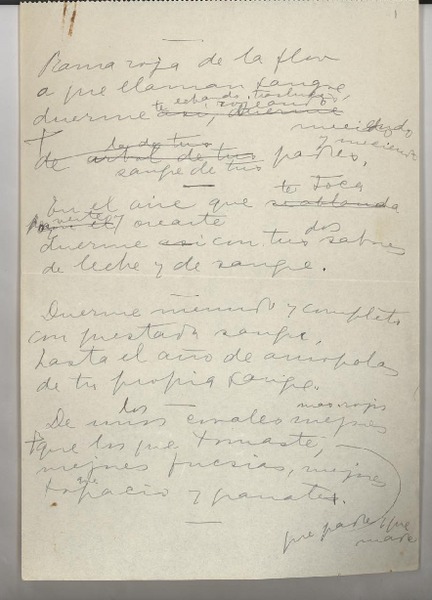 1
Rama roja de la flor
a que llaman sangre,
te echando, trasluz
duerme así, duerme
meciendo
y meciendo
de árbol de tus padres,
sangre de tus
te toca
En el aire que se ablanda
verte y orearte
dos
duerme así con tus sabores
de leche y de sangre.
Duerme menudo y completo
con prestada sangre,
hasta el año de amapolas
de tu propia sangre.
los mas rojos
De unos corales mejores
que los que tomaste,
mejores fucsias, mejores
topacio y granate.
que padre, que
madre